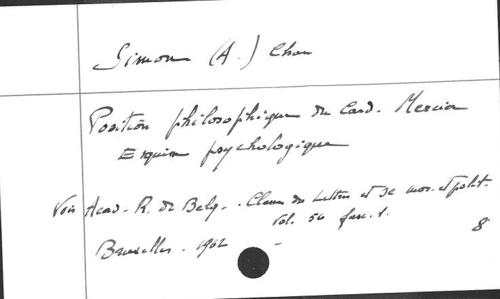 Simon (A.) Chan
Position philosophique du Card. Mercier
Esquisse psychologique
Voir Acad. R. de Belg. - Classe des Lettres et Sc mor. et polit.
Vol. 56 fasc. 1.
8
Bruxelles - 1962 -